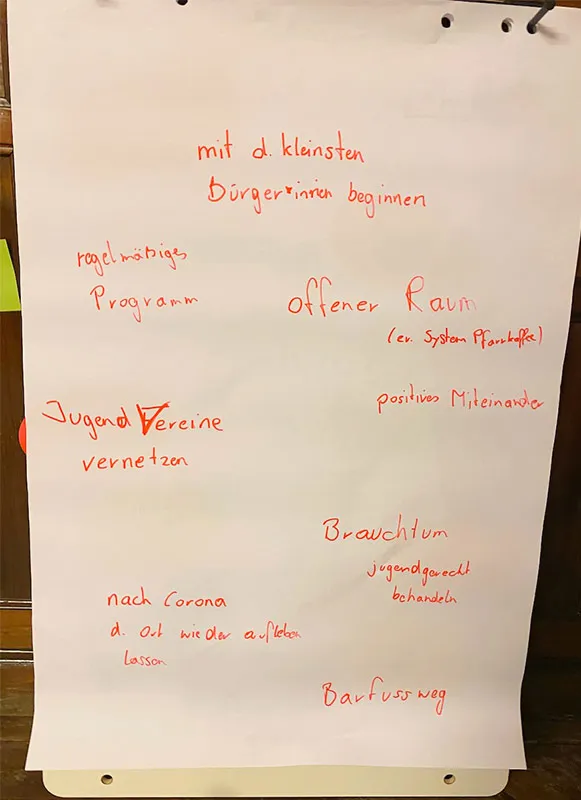 mit d. kleinsten
Bürger*innen beginnen
regelmäßiges
Programm
offener Raum
(ev. System Pfarrkaffee)
positives Miteinander
Jugend Vereine
vernetzen
Brauchtum
jugendgerecht
behandeln
nach Corona
d. Ort wieder aufleben
lassen
Barfussweg